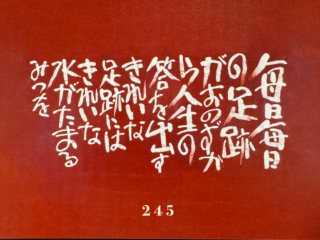 毎日毎日
の足跡
がおのずか
ら人生の
答を出す
きれいな
足跡には
きれいな
水がたまる
みつを
245